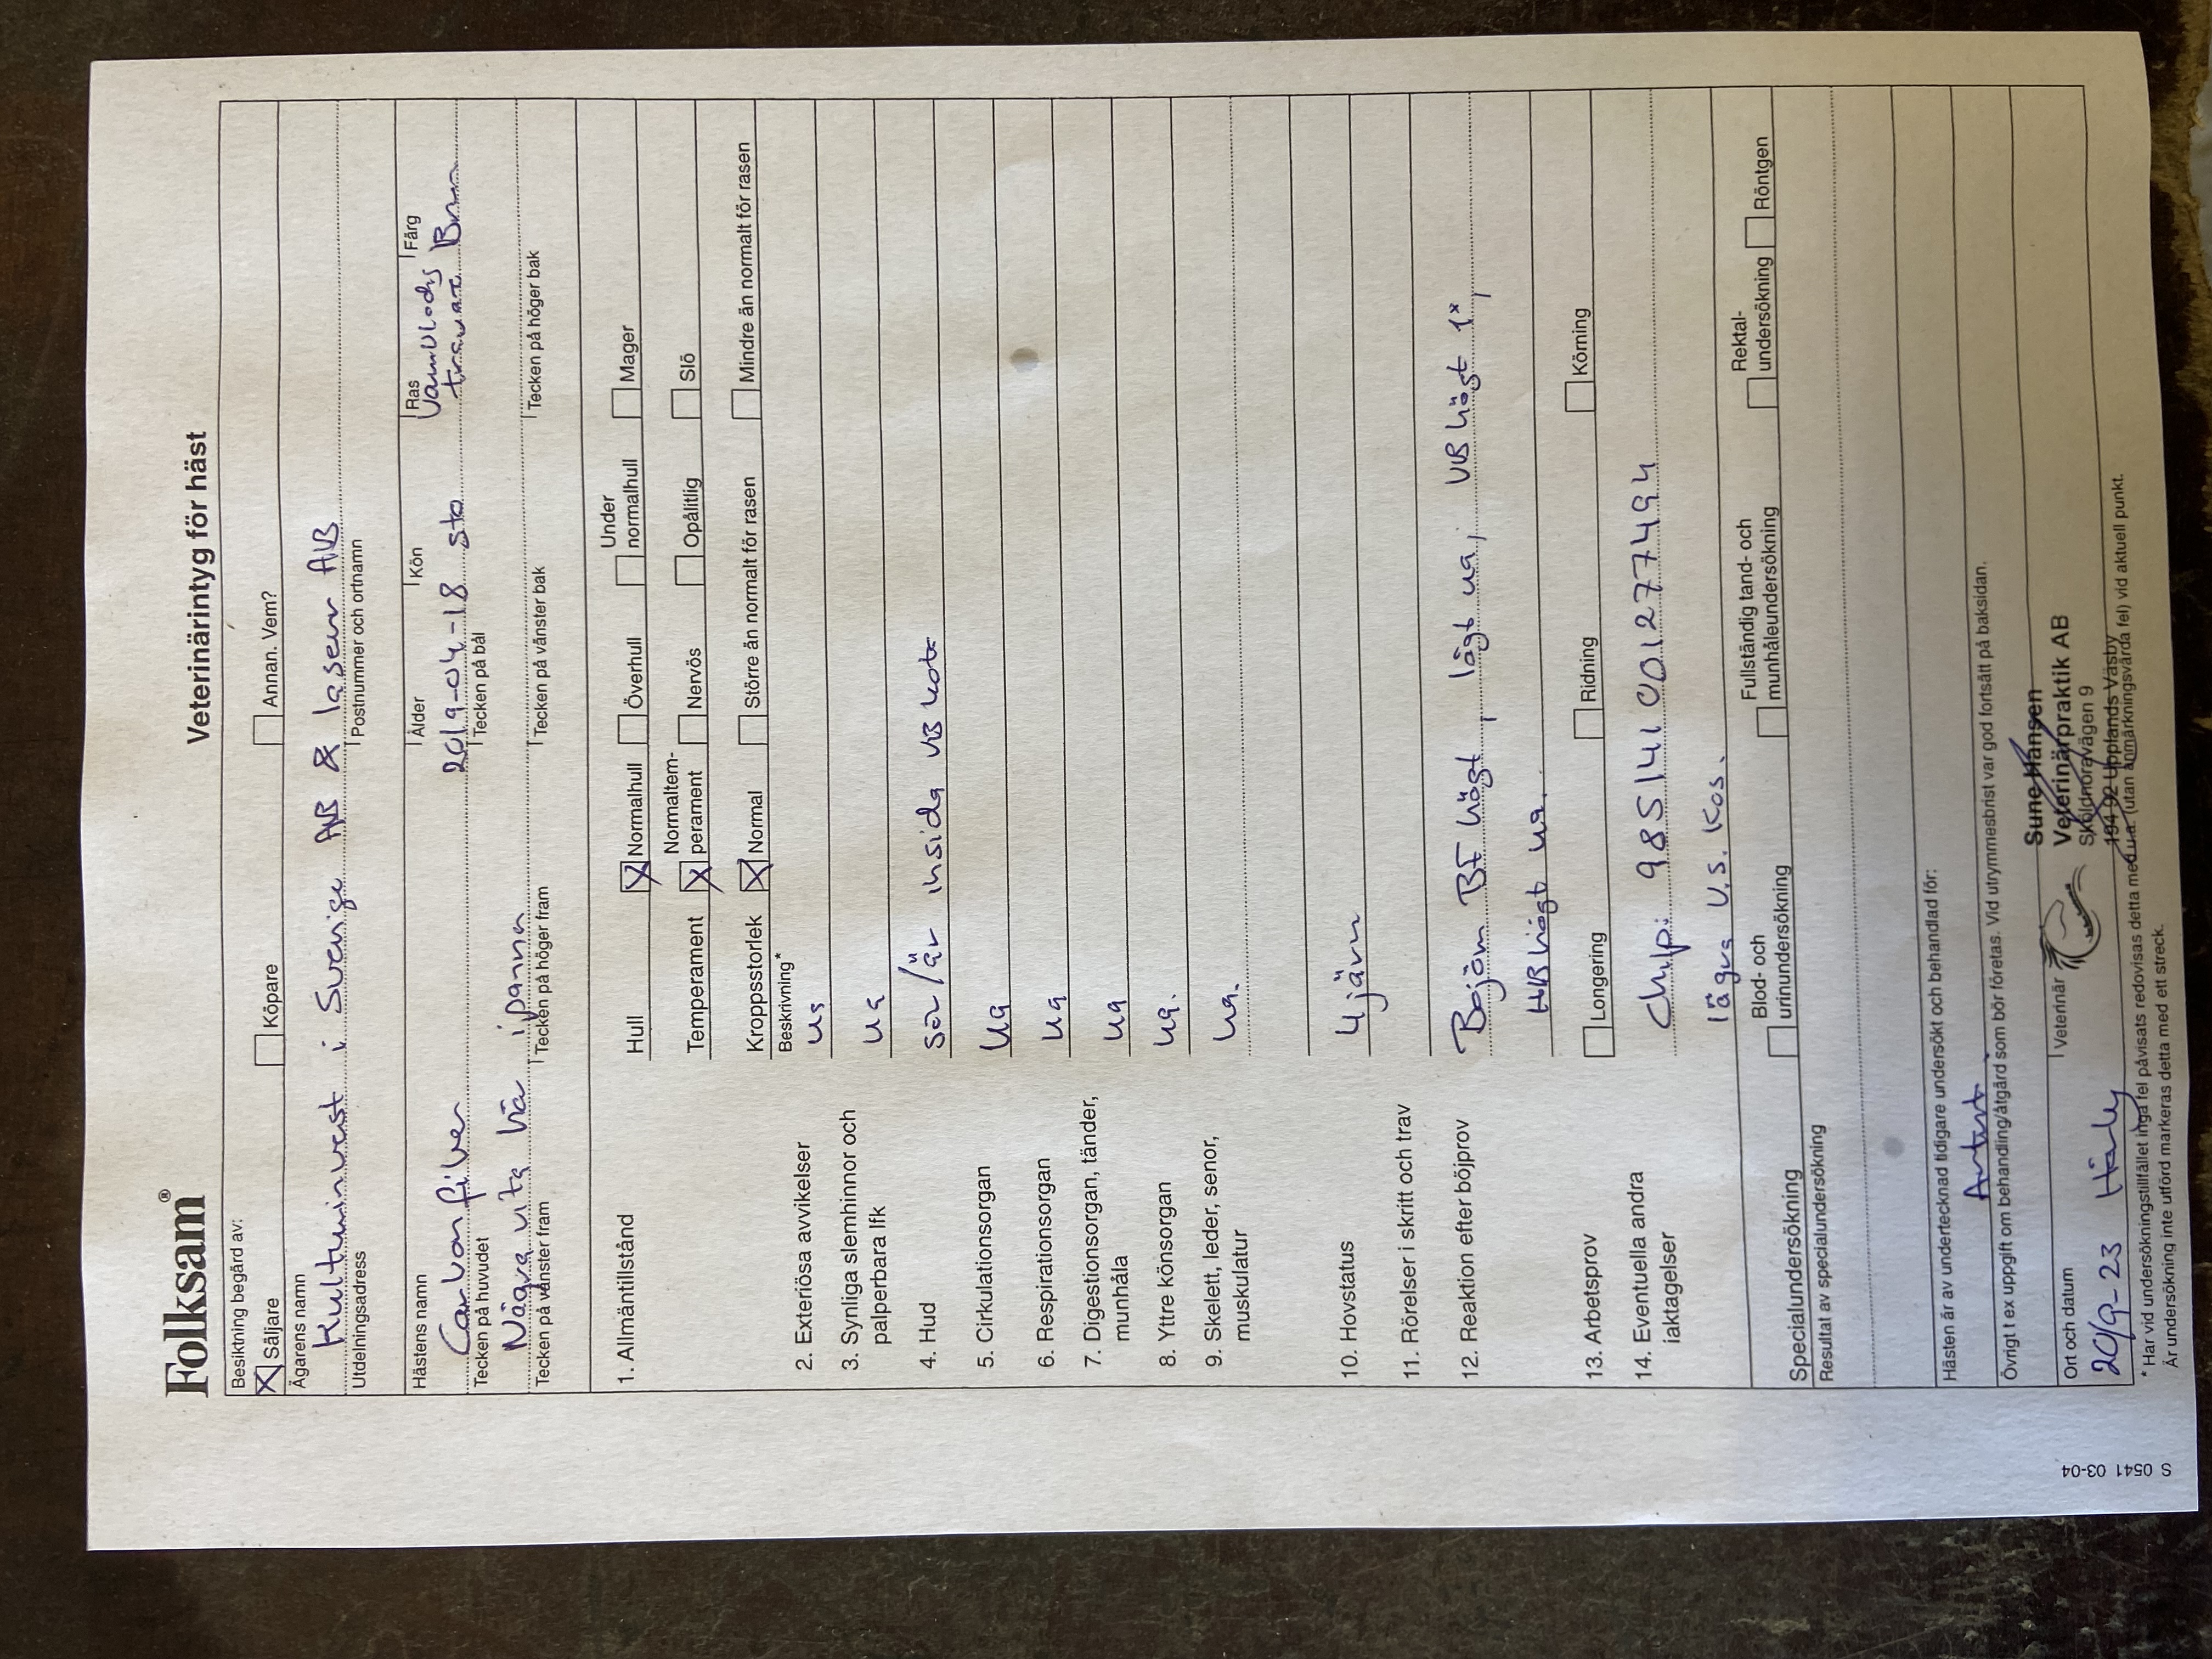 Folksam®
Veterinärintyg för häst
Besiktning begärd av:
X Säljare Köpare Annan. Vem?
Ägarens namn
Kulturinvest i Sverige AB & lasern AB
Utdelningsadress Postnummer och ortnamn
Hästens namn Ålder Kön Ras Färg
Carbonfiber 2019-04-18 sto Varmblods travare Brun
Tecken på huvudet Tecken på bål
Några vita hår i panna
Tecken på vänster fram Tecken på höger fram Tecken på vänster bak Tecken på höger bak
1. Allmäntillstånd Hull X Normalhull Överhull Under normalhull Mager
Temperament X Normaltemperament Nervös Opålitlig Slö
Kroppsstorlek X Normal Större än normalt för rasen Mindre än normalt för rasen
Beskrivning*
2. Exteriösa avvikelser ua
3. Synliga slemhinnor och palperbara lfk ua
4. Hud sår/ärr insida VB kota
5. Cirkulationsorgan ua
6. Respirationsorgan ua
7. Digestionsorgan, tänder, munhåla ua
8. Yttre könsorgan ua.
9. Skelett, leder, senor, muskulatur ua.
10. Hovstatus 4 järn
11. Rörelser i skritt och trav
12. Reaktion efter böjprov Böjöm BF högt, lågt ua, VB högt 1*,
HB högt ua.
13. Arbetsprov Longering Ridning Körning
14. Eventuella andra iaktagelser Chip: 985141001277494
lågra U.S. Kos.
Specialundersökning Blod- och urinundersökning Fullständig tand- och munhåleundersökning Rektalundersökning Röntgen
Resultat av specialundersökning
Hästen är av undertecknad tidigare undersökt och behandlad för:
Övrigt t ex uppgift om behandling/åtgärd som bör företas. Vid utrymmesbrist var god fortsätt på baksidan.
Ort och datum Veterinär
20/9-23
Sune Hansen
Veterinärpraktik AB
Sköldnoravägen 9
194 92 Upplands Väsby
* Har vid undersökningstillfället inga fel påvisats redovisas detta med u.a. (utan anmärkningsvärda fel) vid aktuell punkt.
Är undersökning inte utförd markeras detta med ett streck.
S 0541 03-04